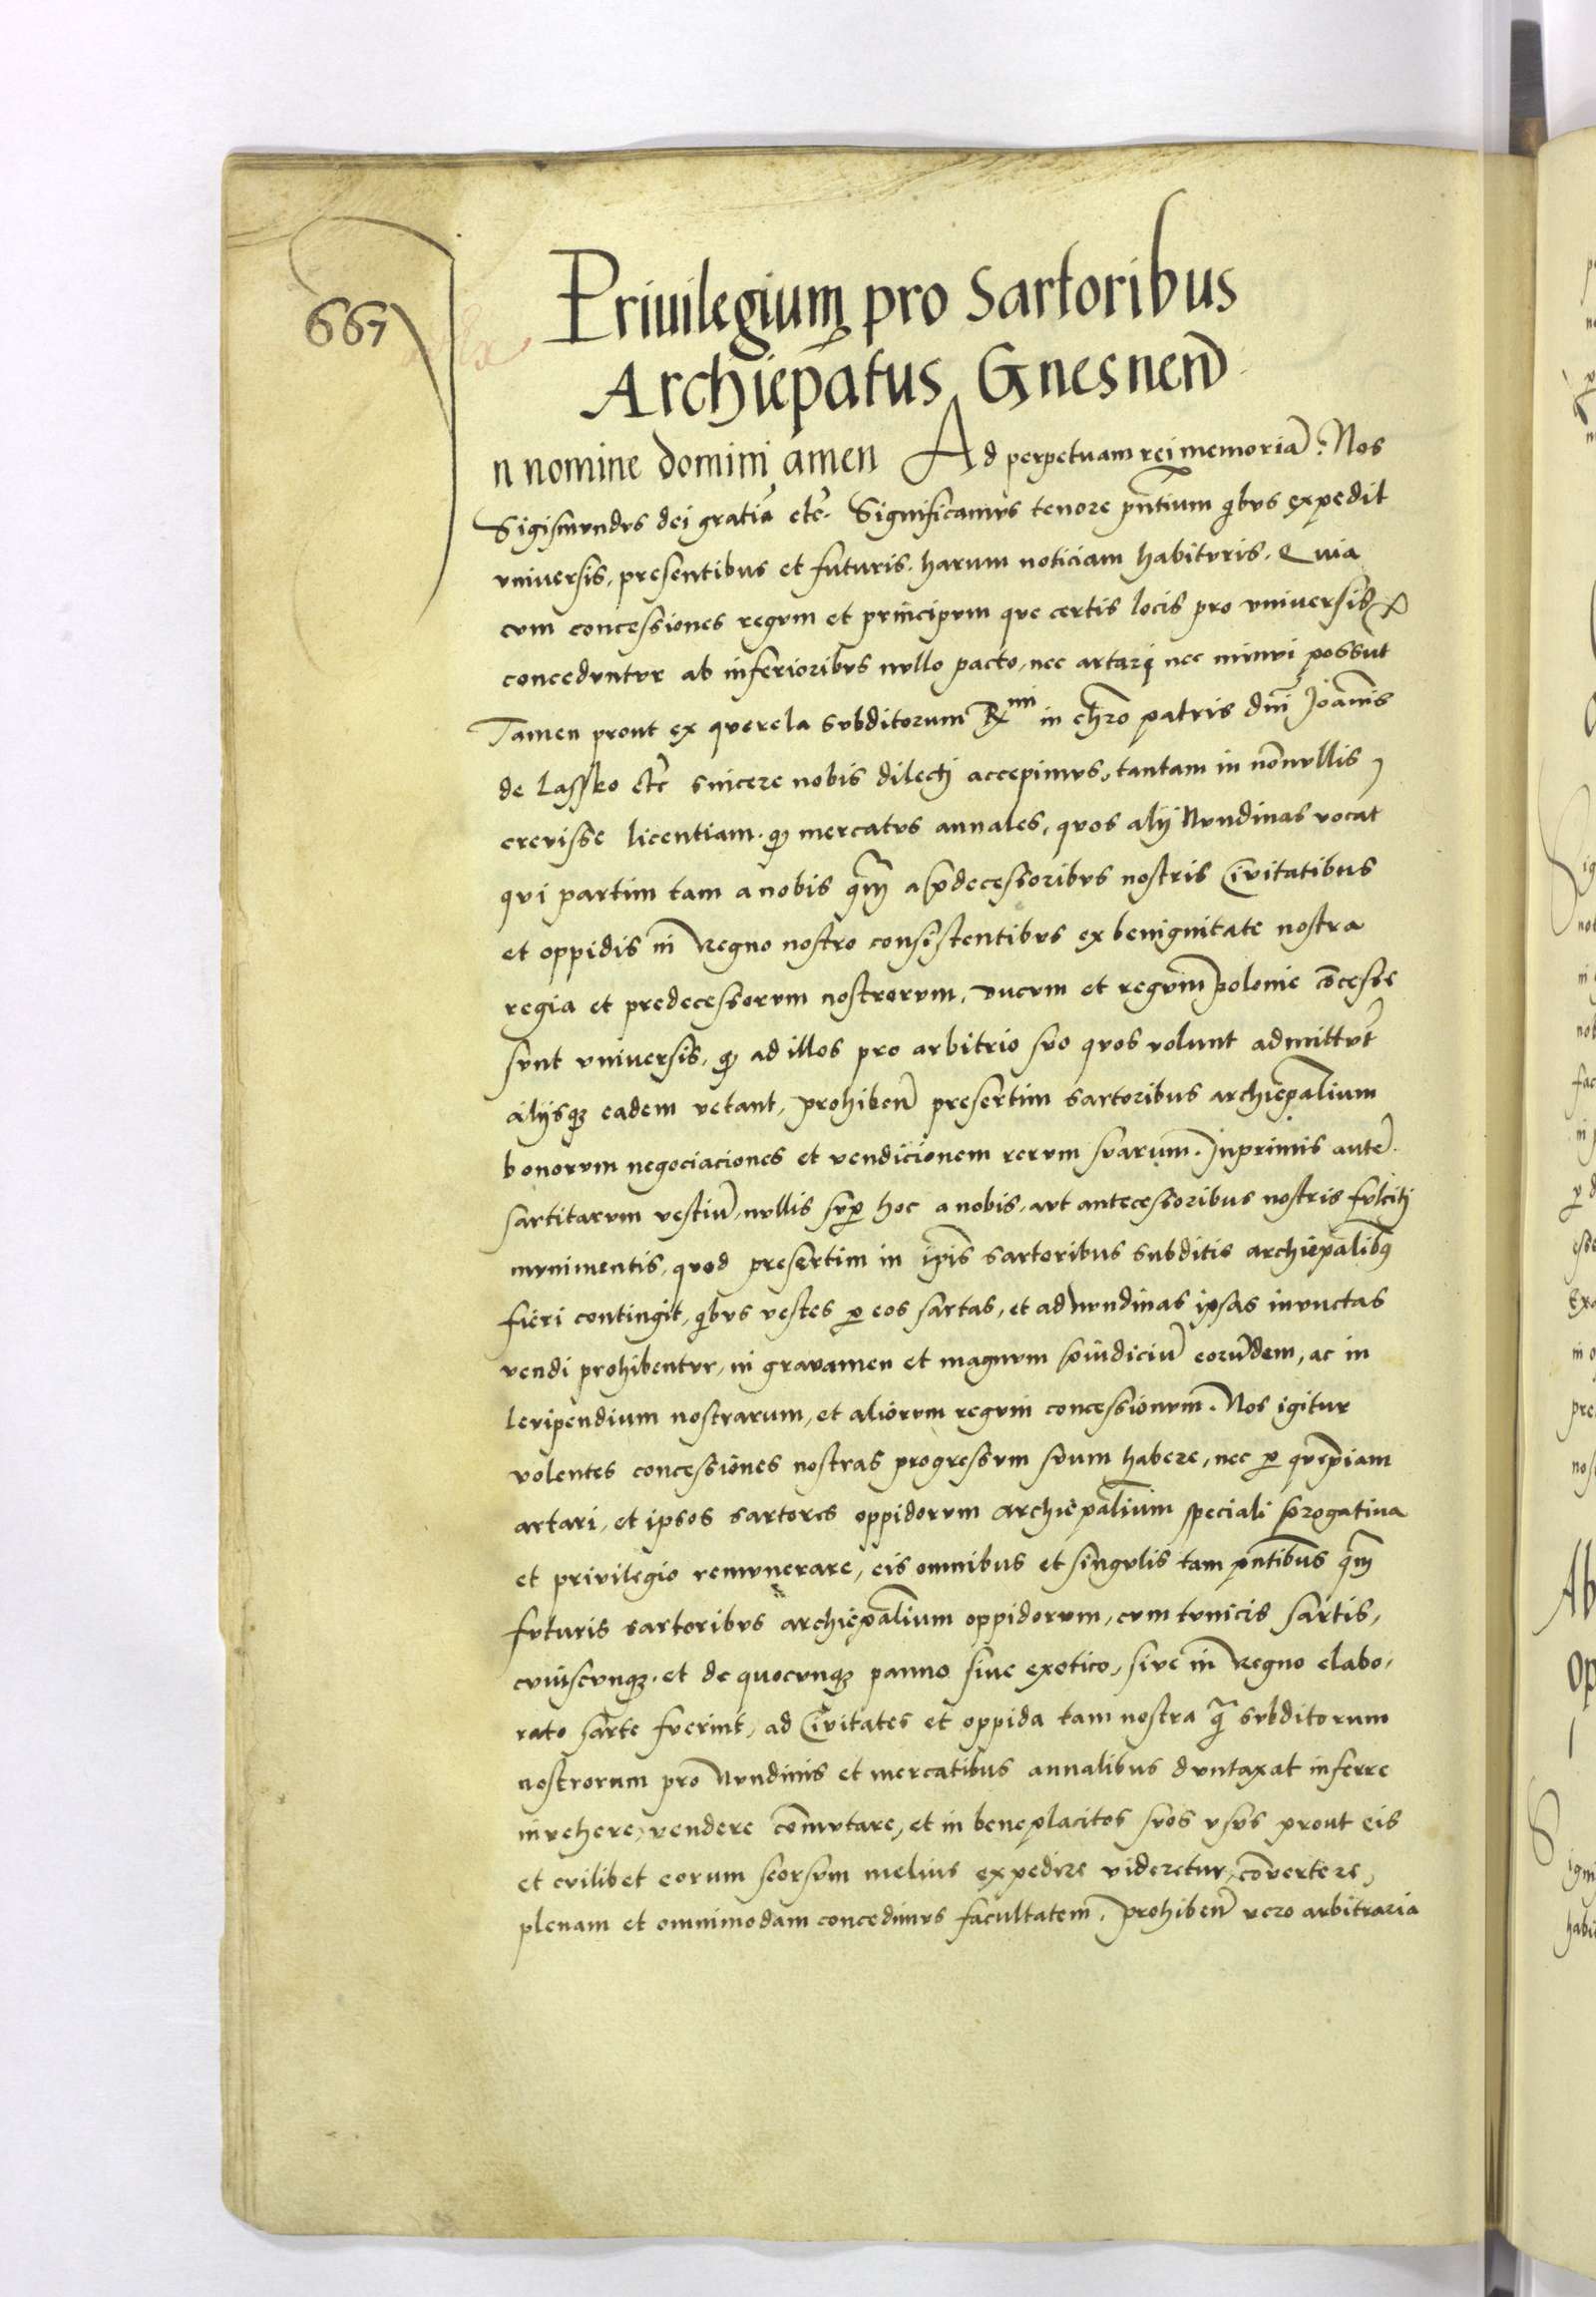 667
Priuilegium pro Sartoribus
Archiepãtus Gnesneñ
In nomine domini amen Ad perpetuam rei memoriã. Nos
Sigismvndvs dei gratia etc̃. Significamvs tenore pñtium qibvs expedit
vniversis, presentibus et futuris. harum noticiam habitvris. Quia
cvm concessiones regvm et principvm que certis locis pro vniversis
concedvntvr ab inferioribvs nvllo pacto, nec artari nec minvi possũt
Tamen prout ex querela svbditorum Rmi in chro patris dñi Joañis
de Lassko etc̃ sincere nobis dilecti accepimvs, tantam in nõnvllis
crevisse licentiam. qꝫ mercatvs annales, qvos alij Nvndinas vocãt
qvi partim tam a nobis qm̃ a p̃decessoribvs nostris Civitatibus
et oppidis in Regno nostro consistentibvs ex benignitate nostra
regia et predecessorvm nostrorvm, ducvm et regvm polonie cõcesse
svnt vniversis, qꝫ ad illos pro arbitrio svo qvos volunt admittvt̃
alijsqꝫ eadem vetant, prohibeñ presertim sartoribus archiepãlium
bonorvm negociaciones et vendicionem rervm svarum. Inprimis autẽ
sartitarvm vestiũ, nvllis sup̱ hoc a nobis, avt antecessoribus nostris fvlciti
mvnimentis, qvod presertim in ip̃is sartoribus subditis archiepãlibꝫ
fieri contingit, qibvs vestes p̱ eos sartas, et ad nvndinas ipsas invectas
vendi prohibentvr, in gravamen et magnvm p̃iudiciũ eorũdem, ac in
levipendium nostrarum, et aliorvm regvm concessionvm. Nos igitur
volentes concessiones nostras progressvm svum habere, nec p̱ quẽpiam
artari, et ipsos sartores oppidorvm archiepãlium speciali p̃rogatiua
et privilegio remvnerare, eis omnibus et singvlis tam pñtibus qm̃
fvturis sartoribvs archiepãlium oppidorvm, cvm tvnicis sartis,
cviuscvnqꝫ. et de quocvnqꝫ panno siue exotico, sive in Regno elabo,
rato sarte fverint, ad Civitates et oppida tam nostra q̃ svbditorum
nostrorum pro Nvndinis et mercatibus annalibus dvntaxat inferre
invehere, vendere cõmvtare, et in beneplacitos svos vsvs prout eis
et cvilibet eorum seorsvm melius expedire videretur, cõvertere,
plenam et omnimodam concedimvs facultatem. prohibeñ vero arbitraria